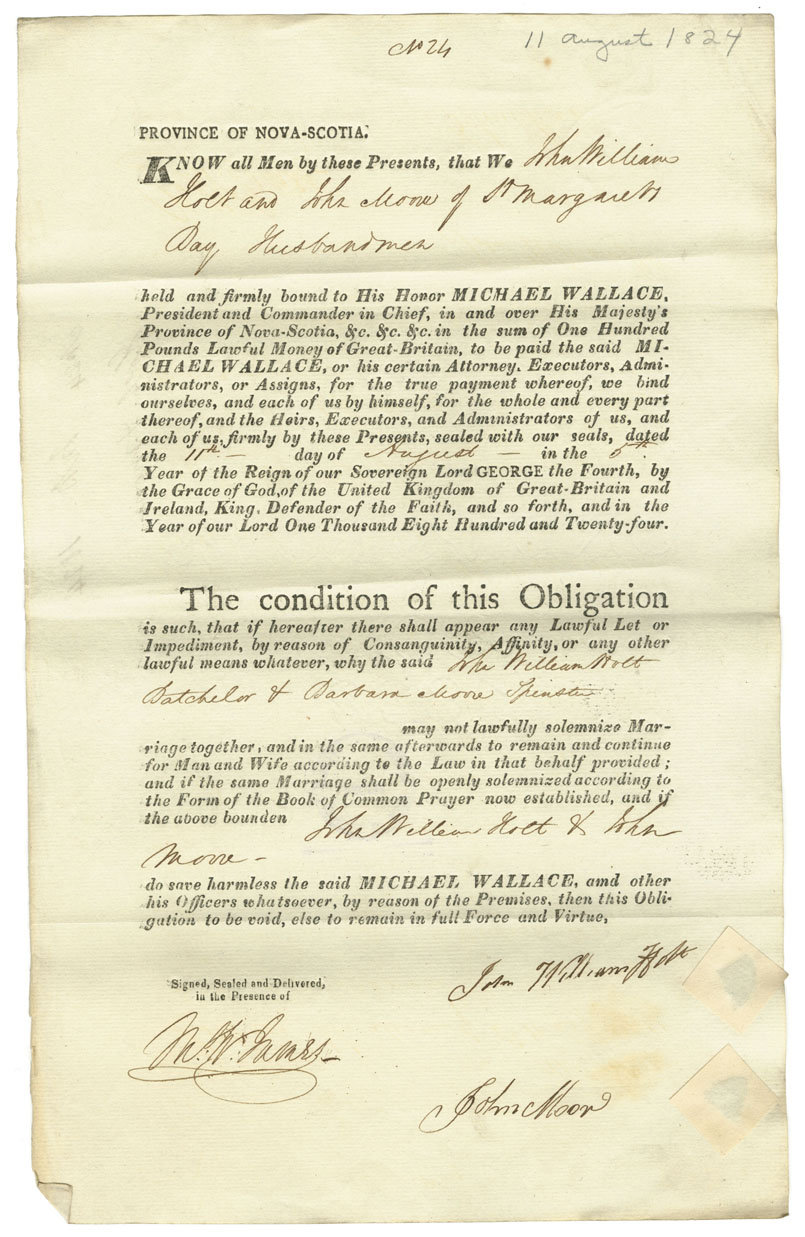 No 24
11 August 1824
PROVINCE OF NOVA-SCOTIA.
KNOW all Men by these Presents, that We John William
Holt and John Moore of St Margarets
Bay Husbandmen
held and firmly bound to His Honor MICHAEL WALLACE,
President and Commander in Chief, in and over His Majesty's
Province of Nova-Scotia, &c. &c. &c. in the sum of One Hundred
Pounds Lawful Money of Great-Britain, to be paid the said MI-
CHAEL WALLACE, or his certain Attorney, Executors, Admi-
nistrators, or Assigns, for the true payment whereof, we bind
ourselves, and each of us by himself, for the whole and every part
thereof, and the Heirs, Executors, and Administrators of us, and
each of us, firmly by these Presents, sealed with our seals, dated
the 11th — day of August — in the 5th
Year of the Reign of our Sovereign Lord GEORGE the Fourth, by
the Grace of God, of the United Kingdom of Great-Britain and
Ireland, King, Defender of the Faith, and so forth, and in the
Year of our Lord One Thousand Eight Hundred and Twenty-four.
The condition of this Obligation
is such, that if hereafter there shall appear any Lawful Let or
Impediment, by reason of Consanguinity, Affinity, or any other
lawful means whatever, why the said John William Holt
Batchelor & Barbara Moore Spinster
may not lawfully solemnize Mar-
riage together, and in the same afterwards to remain and continue
for Man and Wife according to the Law in that behalf provided;
and if the same Marriage shall be openly solemnized according to
the Form of the Book of Common Prayer now established, and if
the above bounden John William Holt & John
Moore —
do save harmless the said MICHAEL WALLACE, amd other
his Officers whatsoever, by reason of the Premises, then this Obli-
gation to be void, else to remain in full Force and Virtue,
Signed, Sealed and Delivered,
in the Presence of
John William Holt
John Moor